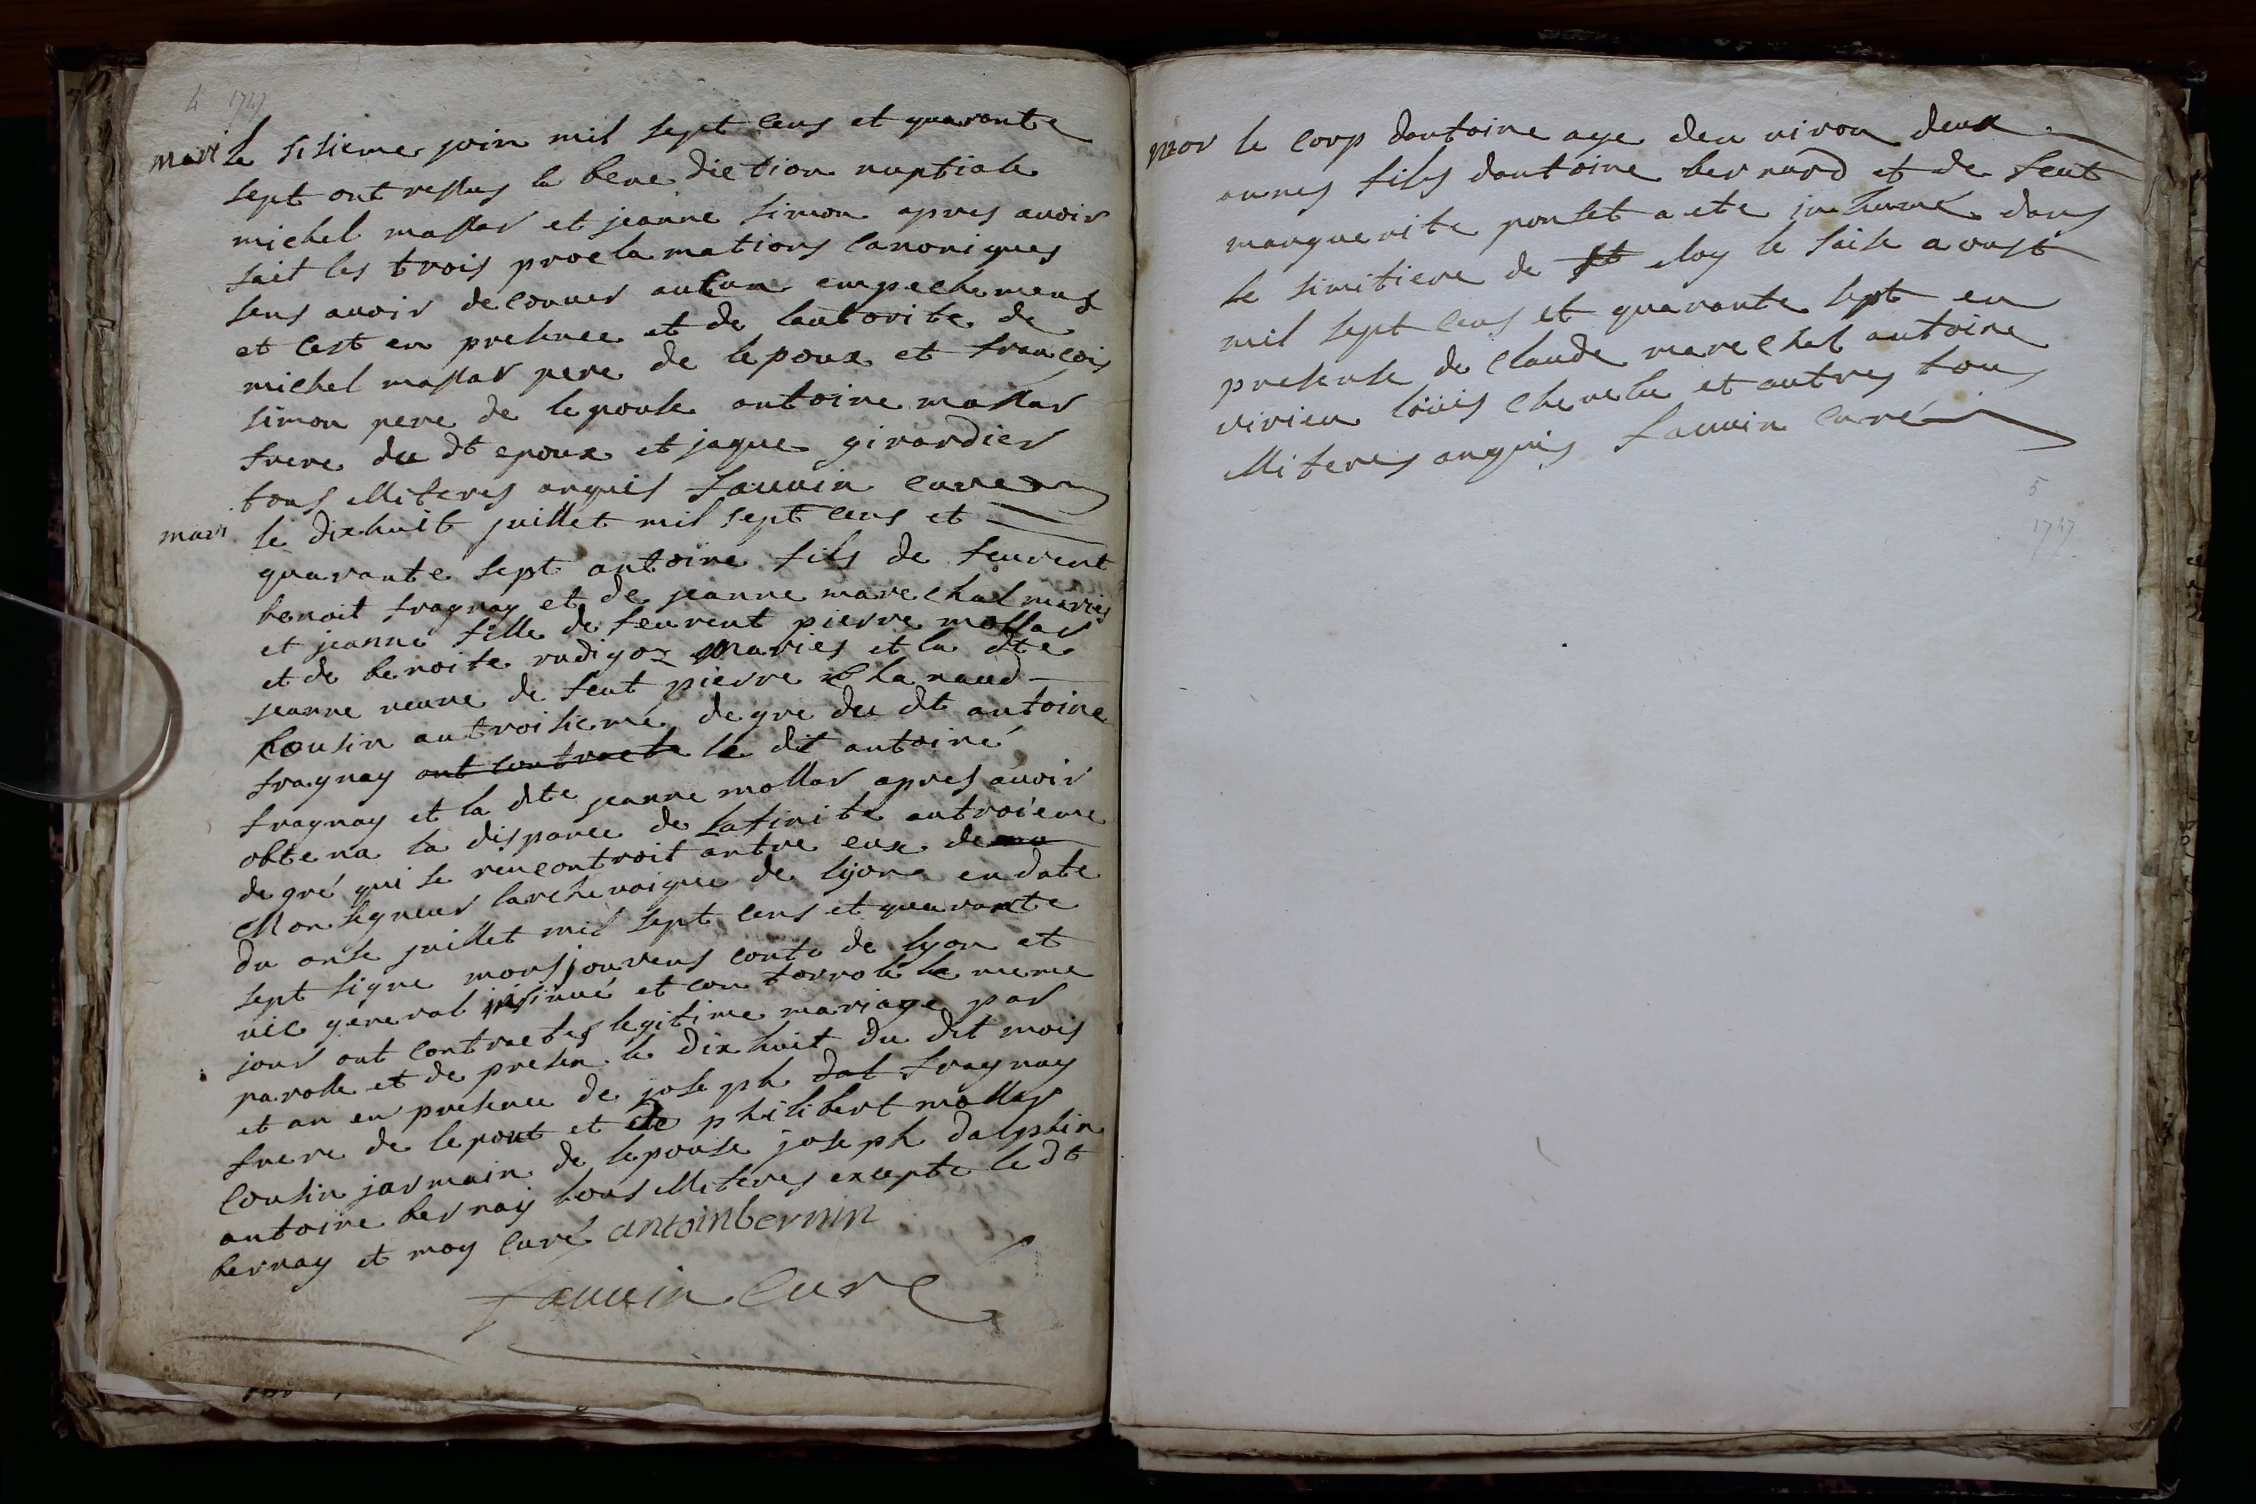 4 1747
mari le sisieme join mil sept cens et quarante
sept ont ressus la bene diction nuptiale
michel mallar et jeanne simon apres avoir
fait les trois proclamations canoniques
sens avoir decouver aucun empechemens
et cest en presence et de lautorite de
michel mallar pere de lepoux et francois
simon pere de lepouse antoine mallar
frere du dt epoux et jaque girardier
tous illiteres anquis fauvin curé
mari le dixhuit juillet mil sept cens et
quarante sept antoine fils de feuvent
benoit fragnay et de jeanne marechal maries
et jeanne fille de feuvent pierre mallar
et de benoite radigoz maries et la dte
jeanne veuve de feut pierre chanaud
cousin autroisieme degre du dt antoine
fragnay ont contracte le dit antoine
fragnay et la dte jeanne mollar apres avoir
obtena la dispance de lafinite autroieme
degré qui se rencontroit antre eux de
Monsegneur larchevaique de lyon en date
du onse juillet mil sept cens et quarante
sept signe monsjouvens conte de lyon et
vic general insinué et controle le meme
jour ont contractes legitime mariage par
parolle et de presen le dix huit du dit mois
et an en presence de joseph dal fragnay
frere de lepout et de philibert mollar
cousin jarmain de lepouse joseph dalphin
antoine bernay tous illiteres excepte le dt
bernay et moy curé antoinbernin
fauvin curé
mor le corp dantoine age denviron deux
annes fils dantoine bernard et de feut
marguerite ponset a ete inhumé dans
le simitiere de st eloy le saise avoust
mil sept cens et quarante sept en
presense de claude marechal antoine
virieu loüis chevelu et autres tous
illiteres anquis fauvin curé
5
1747